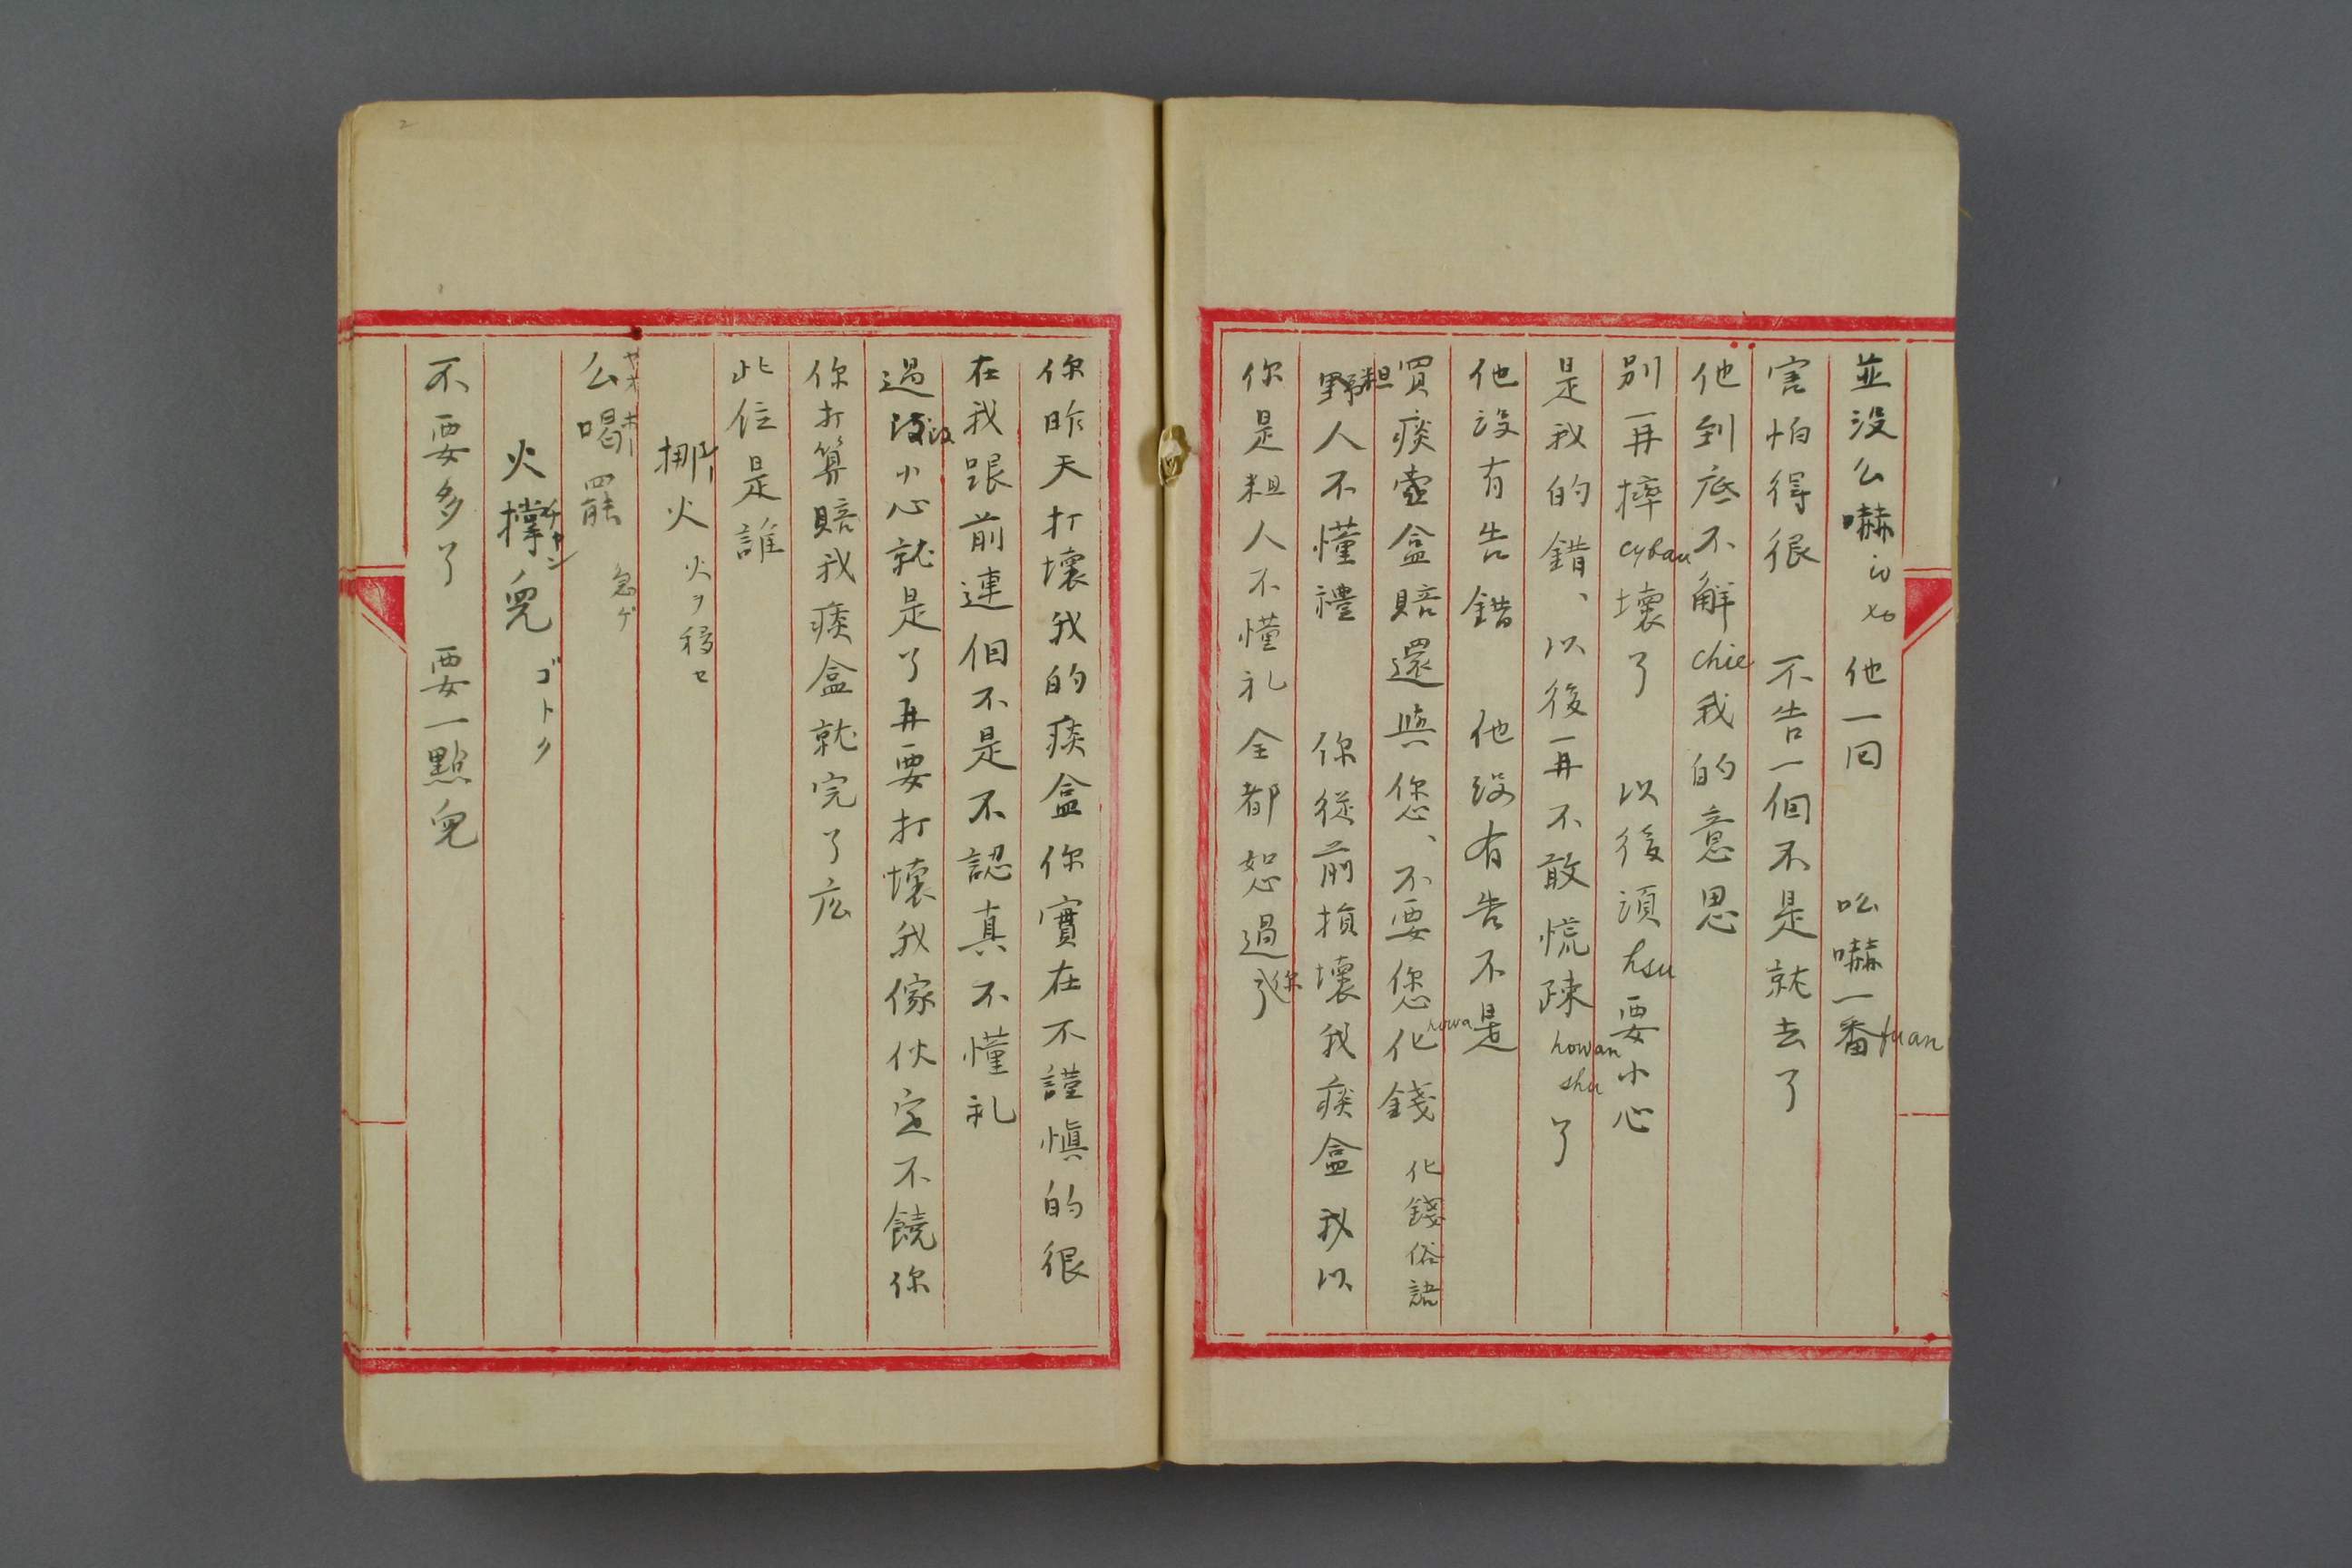 並没么嚇 他一回 吆嚇一番 fuan
害怕得很 不告一個不是就去了
他到底不解 chie 我的意思
別再摔壞了 以後湏 hsu 要小心
是我的錯、以後再不敢慌疎 howan shu 了
他没有告錯 他没有告不是
買痰壺盒賠還與您、不要您化 howa 錢 化錢俗語
野粗人不懂禮 你從前損壞我痰盒我以
你是粗人不懂礼全都恕過你了
你昨天打壞我的痰盒你實在不謹慎的很
在我跟前連個不是不認真不懂礼
過改小心就是了再要打壞我傢伙定不饒你
你打算賠我痰盒就完了庅
此位是誰
挪火 火ヲ移セ
么喝罷 急ゲ
火撑兒 ゴトク
不要多了 要一點兒
2